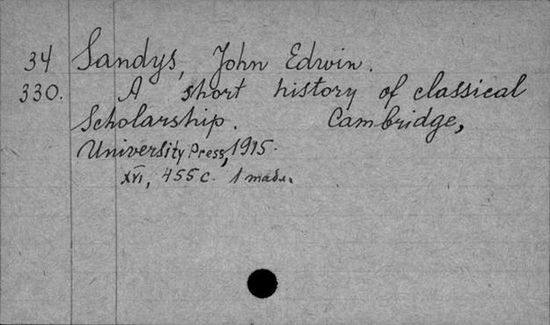 34 Sandys, John Edwin.
330. A short history of classical
Scholarship. Cambridge,
University Press, 1915.
XVI, 455 c. 1 табл.